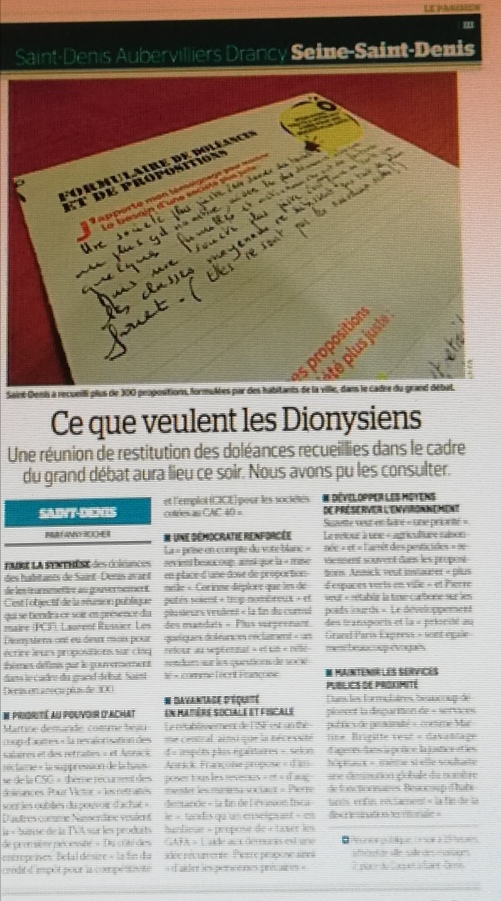 LE PARISIEN
III
Saint-Denis Aubervilliers Drancy Seine-Saint-Denis
FORMULAIRE DE DOLÉANCES
ET DE PROPOSITIONS
J'apporte mon témoignage
le besoin d'une société plus juste
Une société plus juste
quelques
les classes moyennes
es propositions
té plus juste
Saint-Denis a recueilli plus de 300 propositions, formulées par des habitants de la ville, dans le cadre du grand débat.
Ce que veulent les Dionysiens
Une réunion de restitution des doléances recueillies dans le cadre
du grand débat aura lieu ce soir. Nous avons pu les consulter.
SAINT-DENIS
PAR FANNY ROCHER
FAIRE LA SYNTHÈSE des doléances
des habitants de Saint-Denis avant
de les transmettre au gouvernement.
C'est l'objectif de la réunion publique
qui se tiendra ce soir en présence du
maire (PCF), Laurent Russier. Les
Dionysiens ont eu deux mois pour
écrire leurs propositions sur cinq
thèmes définis par le gouvernement
dans le cadre du grand débat. Saint-
Denis en a reçu plus de 300.
■ PRIORITÉ AU POUVOIR D'ACHAT
Martine demande, comme beau-
coup d'autres « la revalorisation des
salaires et des retraites » et Annick
réclame « la suppression de la haus-
se de la CSG », thème récurrent des
doléances. Pour Victor « les retraités
sont les oubliés du pouvoir d'achat ».
D'autres comme Nasserdine veulent
la « baisse de la TVA sur les produits
de première nécessité ». Du côté des
entreprises, Belal désire « la fin du
crédit d'impôt pour la compétitivité
et l'emploi (CICE) pour les sociétés
cotées au CAC 40 ».
■ UNE DÉMOCRATIE RENFORCÉE
La « prise en compte du vote blanc »
revient beaucoup, ainsi que la « mise
en place d'une dose de proportion-
nelle ». Corinne déplore que les dé-
putés soient « trop nombreux » et
plusieurs veulent « la fin du cumul
des mandats ». Plus surprenant,
quelques doléances réclament « un
retour au septennat » et un « réfé-
rendum sur les questions de socié-
té » comme l'écrit Françoise.
■ DAVANTAGE D'ÉQUITÉ
EN MATIÈRE SOCIALE ET FISCALE
Le rétablissement de l'ISF est un thè-
me central, ainsi que la nécessité
d'« impôts plus égalitaires » selon
Annick. Françoise propose « d'im-
poser tous les revenus » et « d'aug-
menter les minima sociaux ». Pierre
demande « la fin de l'évasion fisca-
le », tandis qu'un enseignant « en
banlieue » propose de « taxer les
GAFA ». L'aide aux démunis est une
idée récurrente. Pierre propose ainsi
« d'aider les personnes précaires ».
■ DÉVELOPPER LES MOYENS
DE PRÉSERVER L'ENVIRONNEMENT
Suzette veut en faire « une priorité ».
Le retour à une « agriculture raison-
née » et « l'arrêt des pesticides » re-
viennent souvent dans les proposi-
tions. Annick veut instaurer « plus
d'espaces verts en ville » et Pierre
veut « rétablir la taxe carbone sur les
poids lourds ». Le développement
des transports et la « priorité au
Grand Paris Express » sont égale-
ment beaucoup évoqués.
■ MAINTENIR LES SERVICES
PUBLICS DE PROXIMITÉ
Dans les formulaires, beaucoup dé-
plorent la disparition de « services
publics de proximité », comme Mar-
tine. Brigitte veut « davantage
d'agents dans la police, la justice et les
hôpitaux », même si elle souhaite
une diminution globale du nombre
de fonctionnaires. Beaucoup d'habi-
tants, enfin, réclament « la fin de la
discrimination territoriale ».
Réunion publique, ce soir à
2, place du Caquet à Saint-Denis.